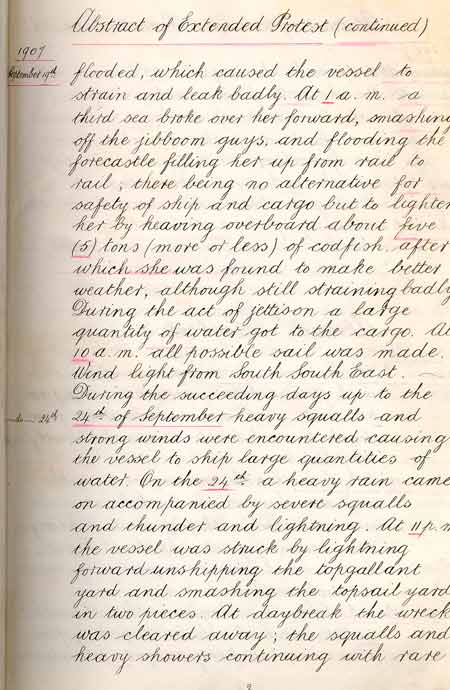 Abstract of Extended Protest (continued)
1907
September 19th
flooded, which caused the vessel to
strain and leak badly. At 1 a. m. a
third sea broke over her forward, smashing
off the jibboom guys, and flooding the
forecastle filling her up from rail to
rail; there being no alternative for
safety of ship and cargo but to lighten
her by heaving overboard about five
(5) tons (more or less) of codfish. after
which she was found to make better
weather, although still straining badly
During the act of jettison a large
quantity of water got to the cargo. At
10 a. m. all possible sail was made.
Wind light from South South East.
During the succeeding days up to the
24th
24th of September heavy squalls and
strong winds were encountered causing
the vessel to ship large quantities of
water. On the 24th a heavy rain came
on accompanied by severe squalls
and thunder and lightning. At 11 p. m
the vessel was struck by lightning
forward unshipping the topgallant
yard and smashing the topsail yard
in two pieces. At daybreak the wreck
was cleared away; the squalls and
heavy showers continuing with rare